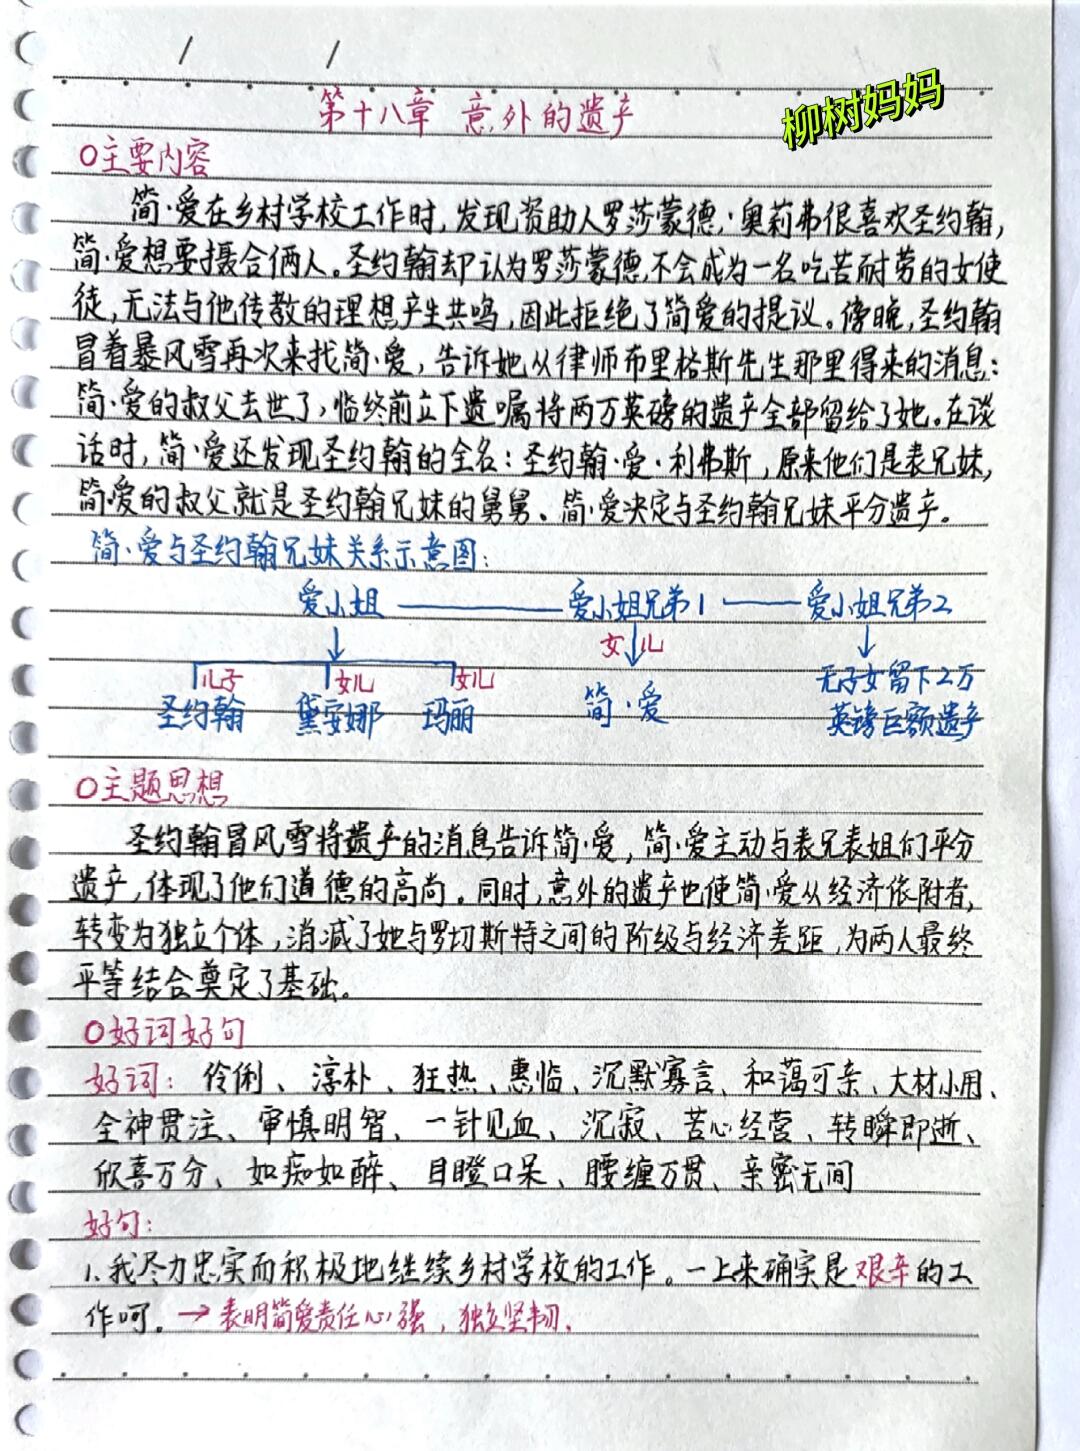 第十八章 意外的遗产
柳树妈妈
○主要内容
简·爱在乡村学校工作时,发现资助人罗莎蒙德·奥莉弗很喜欢圣约翰,
简·爱想要撮合俩人。圣约翰却认为罗莎蒙德不会成为一名吃苦耐劳的女使
徒,无法与他传教的理想产生共鸣,因此拒绝了简爱的提议。傍晚,圣约翰
冒着暴风雪再次来找简·爱,告诉她从律师布里格斯先生那里得来的消息:
简·爱的叔父去世了,临终前立下遗嘱将两万英磅的遗产全部留给了她。在谈
话时,简·爱还发现圣约翰的全名:圣约翰·爱·利弗斯,原来他们是表兄妹,
简爱的叔父就是圣约翰兄妹的舅舅、简·爱决定与圣约翰兄妹平分遗产。
简·爱与圣约翰兄妹关系示意图:
爱小姐 —— 爱小姐兄弟1 —— 爱小姐兄弟2
女儿
儿子 女儿 女儿
圣约翰 黛安娜 玛丽 简·爱
无子女留下2万
英镑巨额遗产
○主题思想
圣约翰冒风雪将遗产的消息告诉简·爱,简·爱主动与表兄表姐们平分
遗产,体现了他们道德的高尚。同时,意外的遗产也使简·爱从经济依附者,
转变为独立个体,消减了她与罗切斯特之间的阶级与经济差距,为两人最终
平等结合奠定了基础。
○好词好句
好词:伶俐、淳朴、狂热、惠临、沉默寡言、和蔼可亲、大材小用、
全神贯注、审慎明智、一针见血、沉寂、苦心经营、转瞬即逝、
欣喜万分、如痴如醉、目瞪口呆、腰缠万贯、亲密无间
好句:
1.我尽力忠实而积极地继续乡村学校的工作。一上来确实是艰辛的工
作呵。→表明简爱责任心强,独立坚韧.